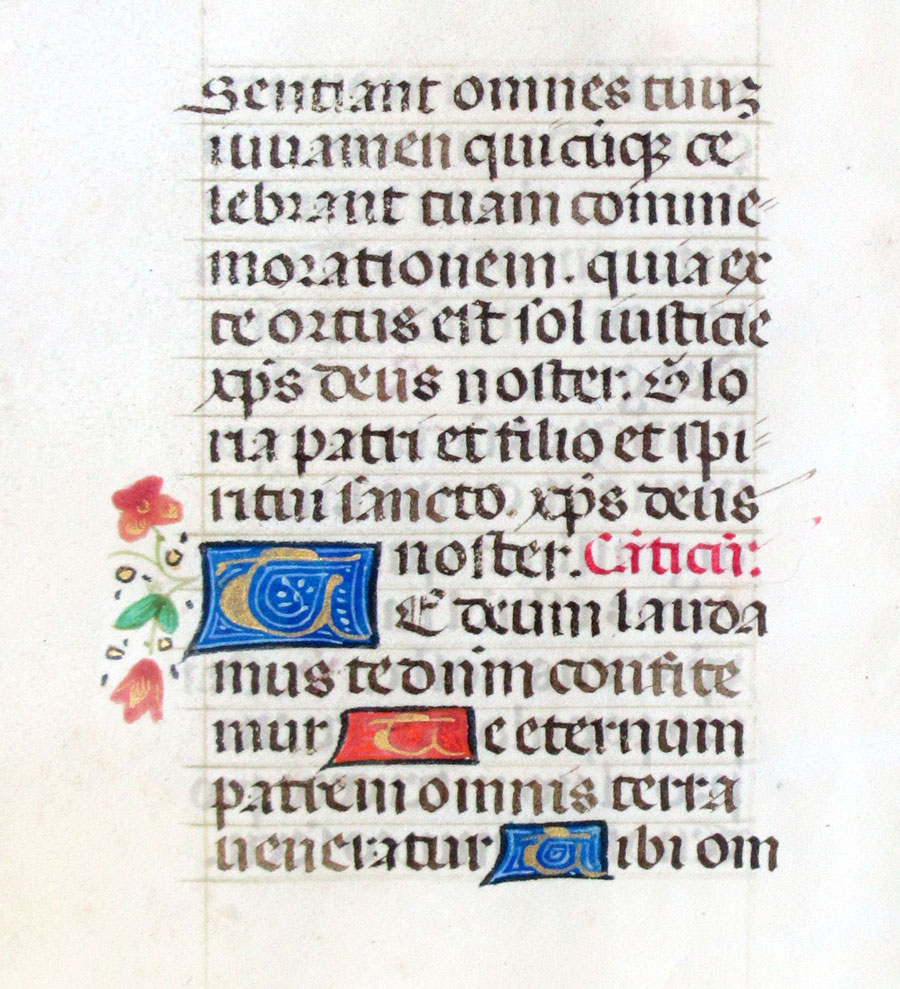 Sentiant omnes tuuꝫ
iuuamen quicūqꝫ ce
lebrant tuam comme
morationem. quia ex
te ortus est sol iusticie
xp̄s deus noster. Glo
ria patri et filio et spi
ritui sancto. xp̄s deus
noster. Cāticū:
TE deum lauda
mus te dn̄m confite
mur Te eternum
patrem omnis terra
ueneratur Tibi om